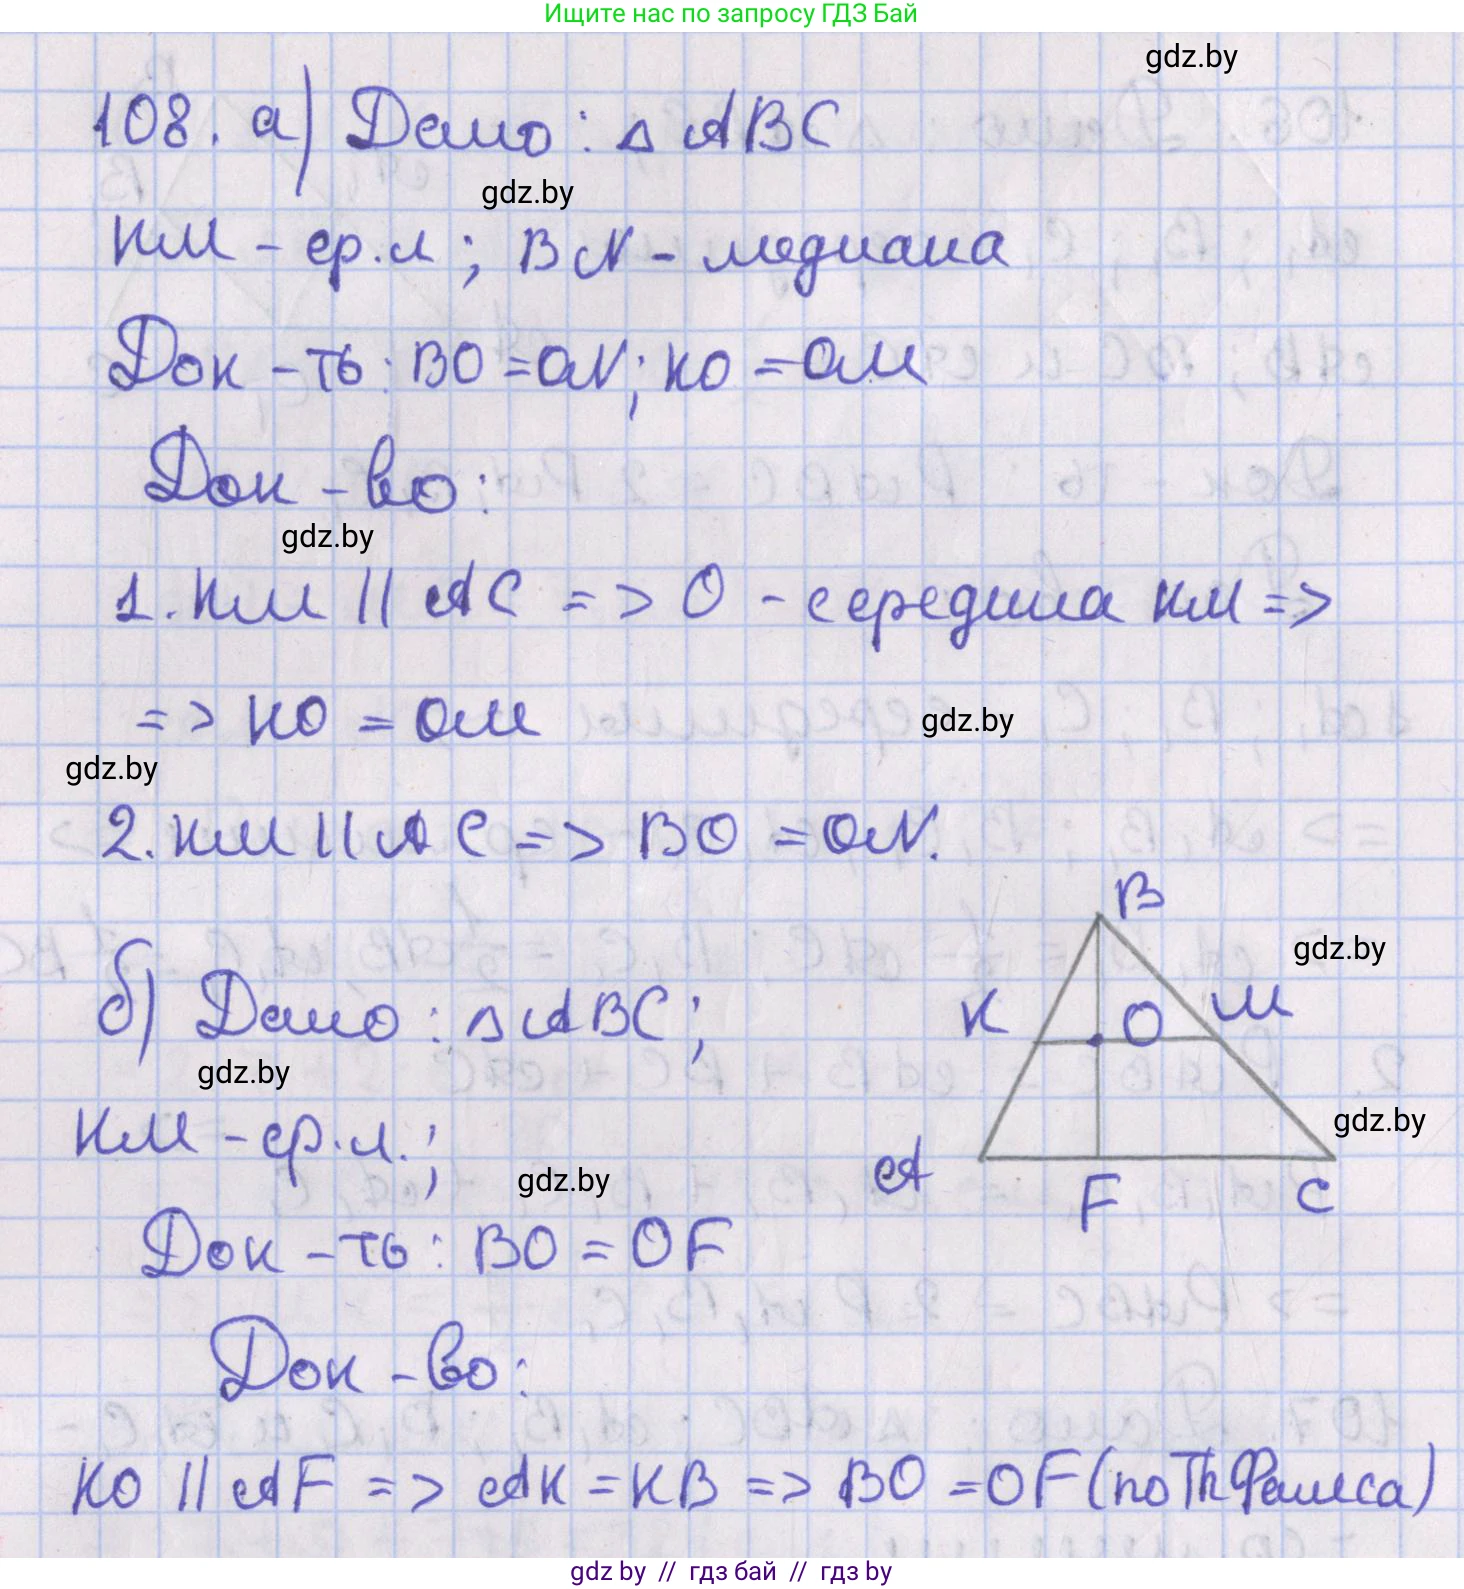 Ищите нас по запросу ГДЗ Бай
gdz.by
108. а) Дано: △ ABC
gdz.by
KM - ср.л; BN - медиана
Док-ть: BO = ON; KO = OM
Док-во:
gdz.by
1. KM || AC => O - середина KM =>
=> KO = OM
gdz.by
gdz.by
2. KM || AC => BO = ON.
B
gdz.by
K
O
M
б) Дано: △ABC;
gdz.by
KM - ср.л.;
gdz.by
gdz.by
A
F
C
Док-ть: BO = OF
Док-во:
KO || AF => AK = KB => BO = OF (по Th Фалеса)
gdz by // гдз бай // гдз by